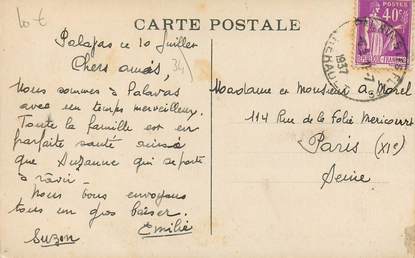 10 €
CARTE POSTALE
40c
1937
Palavas ce 10 Juillet
34
Chers amis,
Nous sommes à Palavas
avec un temps merveilleux.
Toute la famille est en
parfaite santé ainsi
que Suzanne qui se porte
à ravir -
Nous vous envoyons
tous un gros baiser.
Emilie
Suzon
Madame et Monsieur A. Morel
114 Rue de la Folie Mericourt
Paris (XIe)
Seine